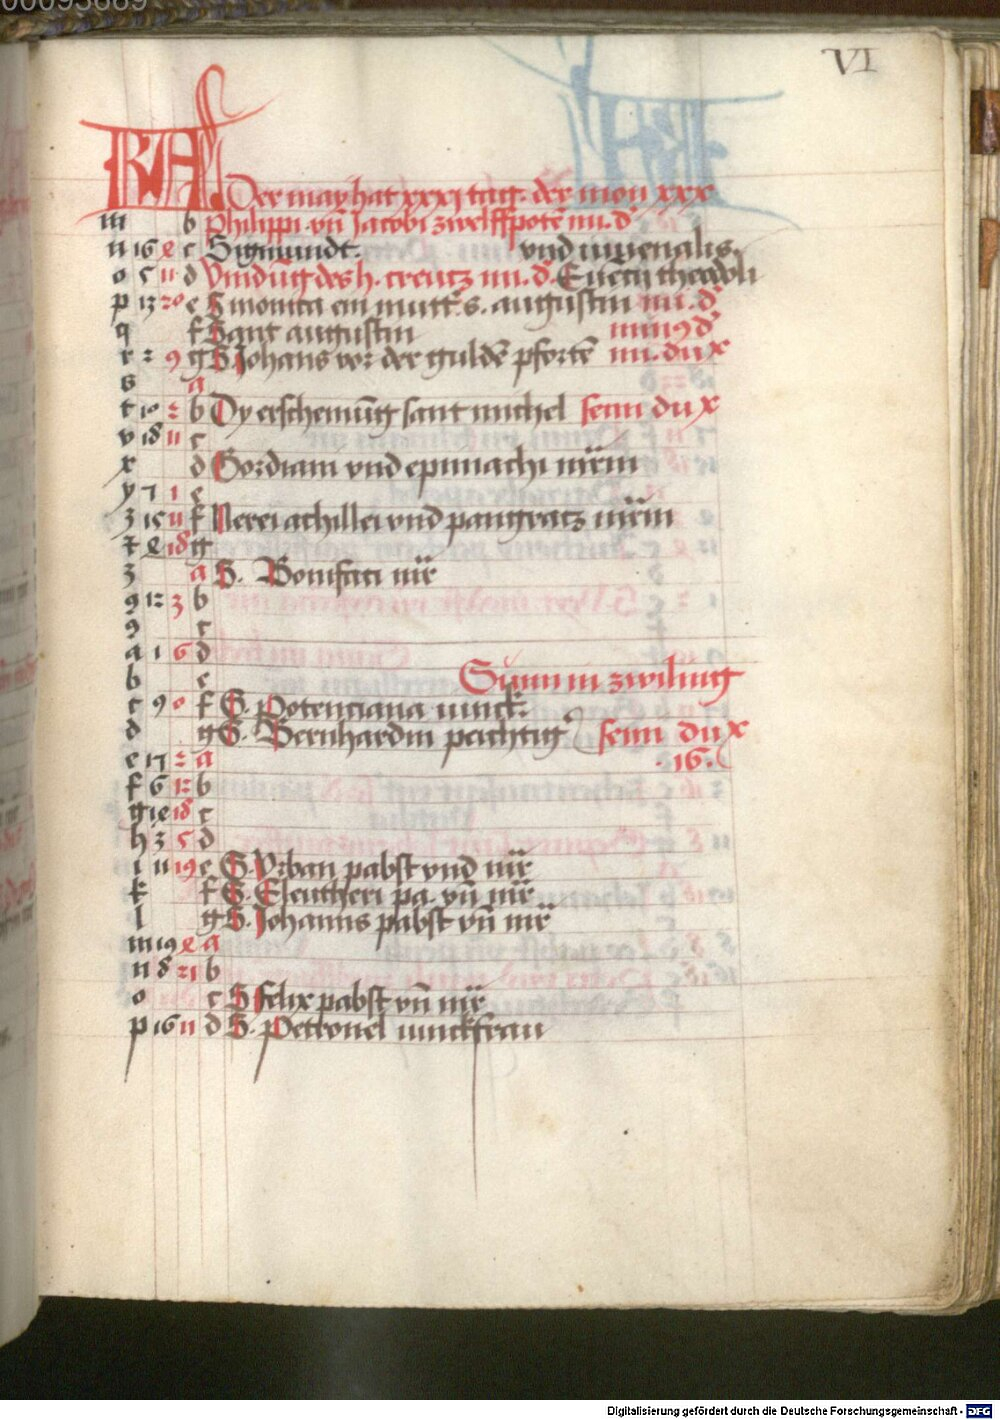 00093889
VI
KAL Der may hat xxxi tag. der mon xxx
m b Philippi vn̄ Jacobi zwelffpotē mi. d̓
n 16 e c Sigmundt. vnd iuuenalis.
o 5 11 d Vindūg des h. creutz mi. d̓. Euenti theodoli
p 13 20 e S monica ein mutt̓ s. augustin mi. d̓
q f Sant augustin min9 d̓
r 2 9 g S. Johans vor der guldē pfortē mi. du x
s a
t 10 2 b Dy erscheinūg sant michel semi du x
v 18 11 c
x d Gordiani vnd epimachi mr̄m
y 7 1 e
z 15 11 f Nerei achillei vnd pangracz mr̄m
g
3 a S. Bonifaci mr̄
9 12 3 b
9 c
a 1 6 d
b e Sunn in zwiling
c 9 0 f S. Potenciana iunck.
d g S. Bernhardin peichtig̓ semi du x
e 17 2 a .16.
f 6 12 b
g 18 c
h 3 5 d
i 11 19 e S. Vrban pabst vnd mr̄
k f S. Eleutheri pa. vn̄ mr̄
l g S. Johanns pabst vn̄ mr̄
m 19 e a
n 8 21 b
o c S felix pabst vn̄ mr̄
p 16 11 d S. Petronel iunckfrau
Digitalisierung gefördert durch die Deutsche Forschungsgemeinschaft - DFG